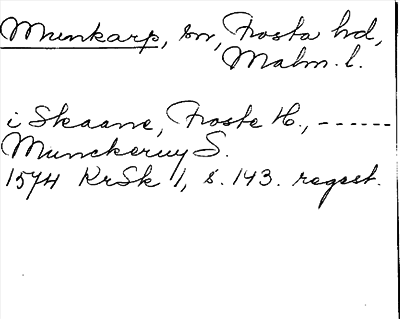 Munkarp, sn, Frosta hd,
Malm. l.
i Skaane, Froste H., ------
Munckeruy S.
1574 KrSk 1, s. 143. regest.